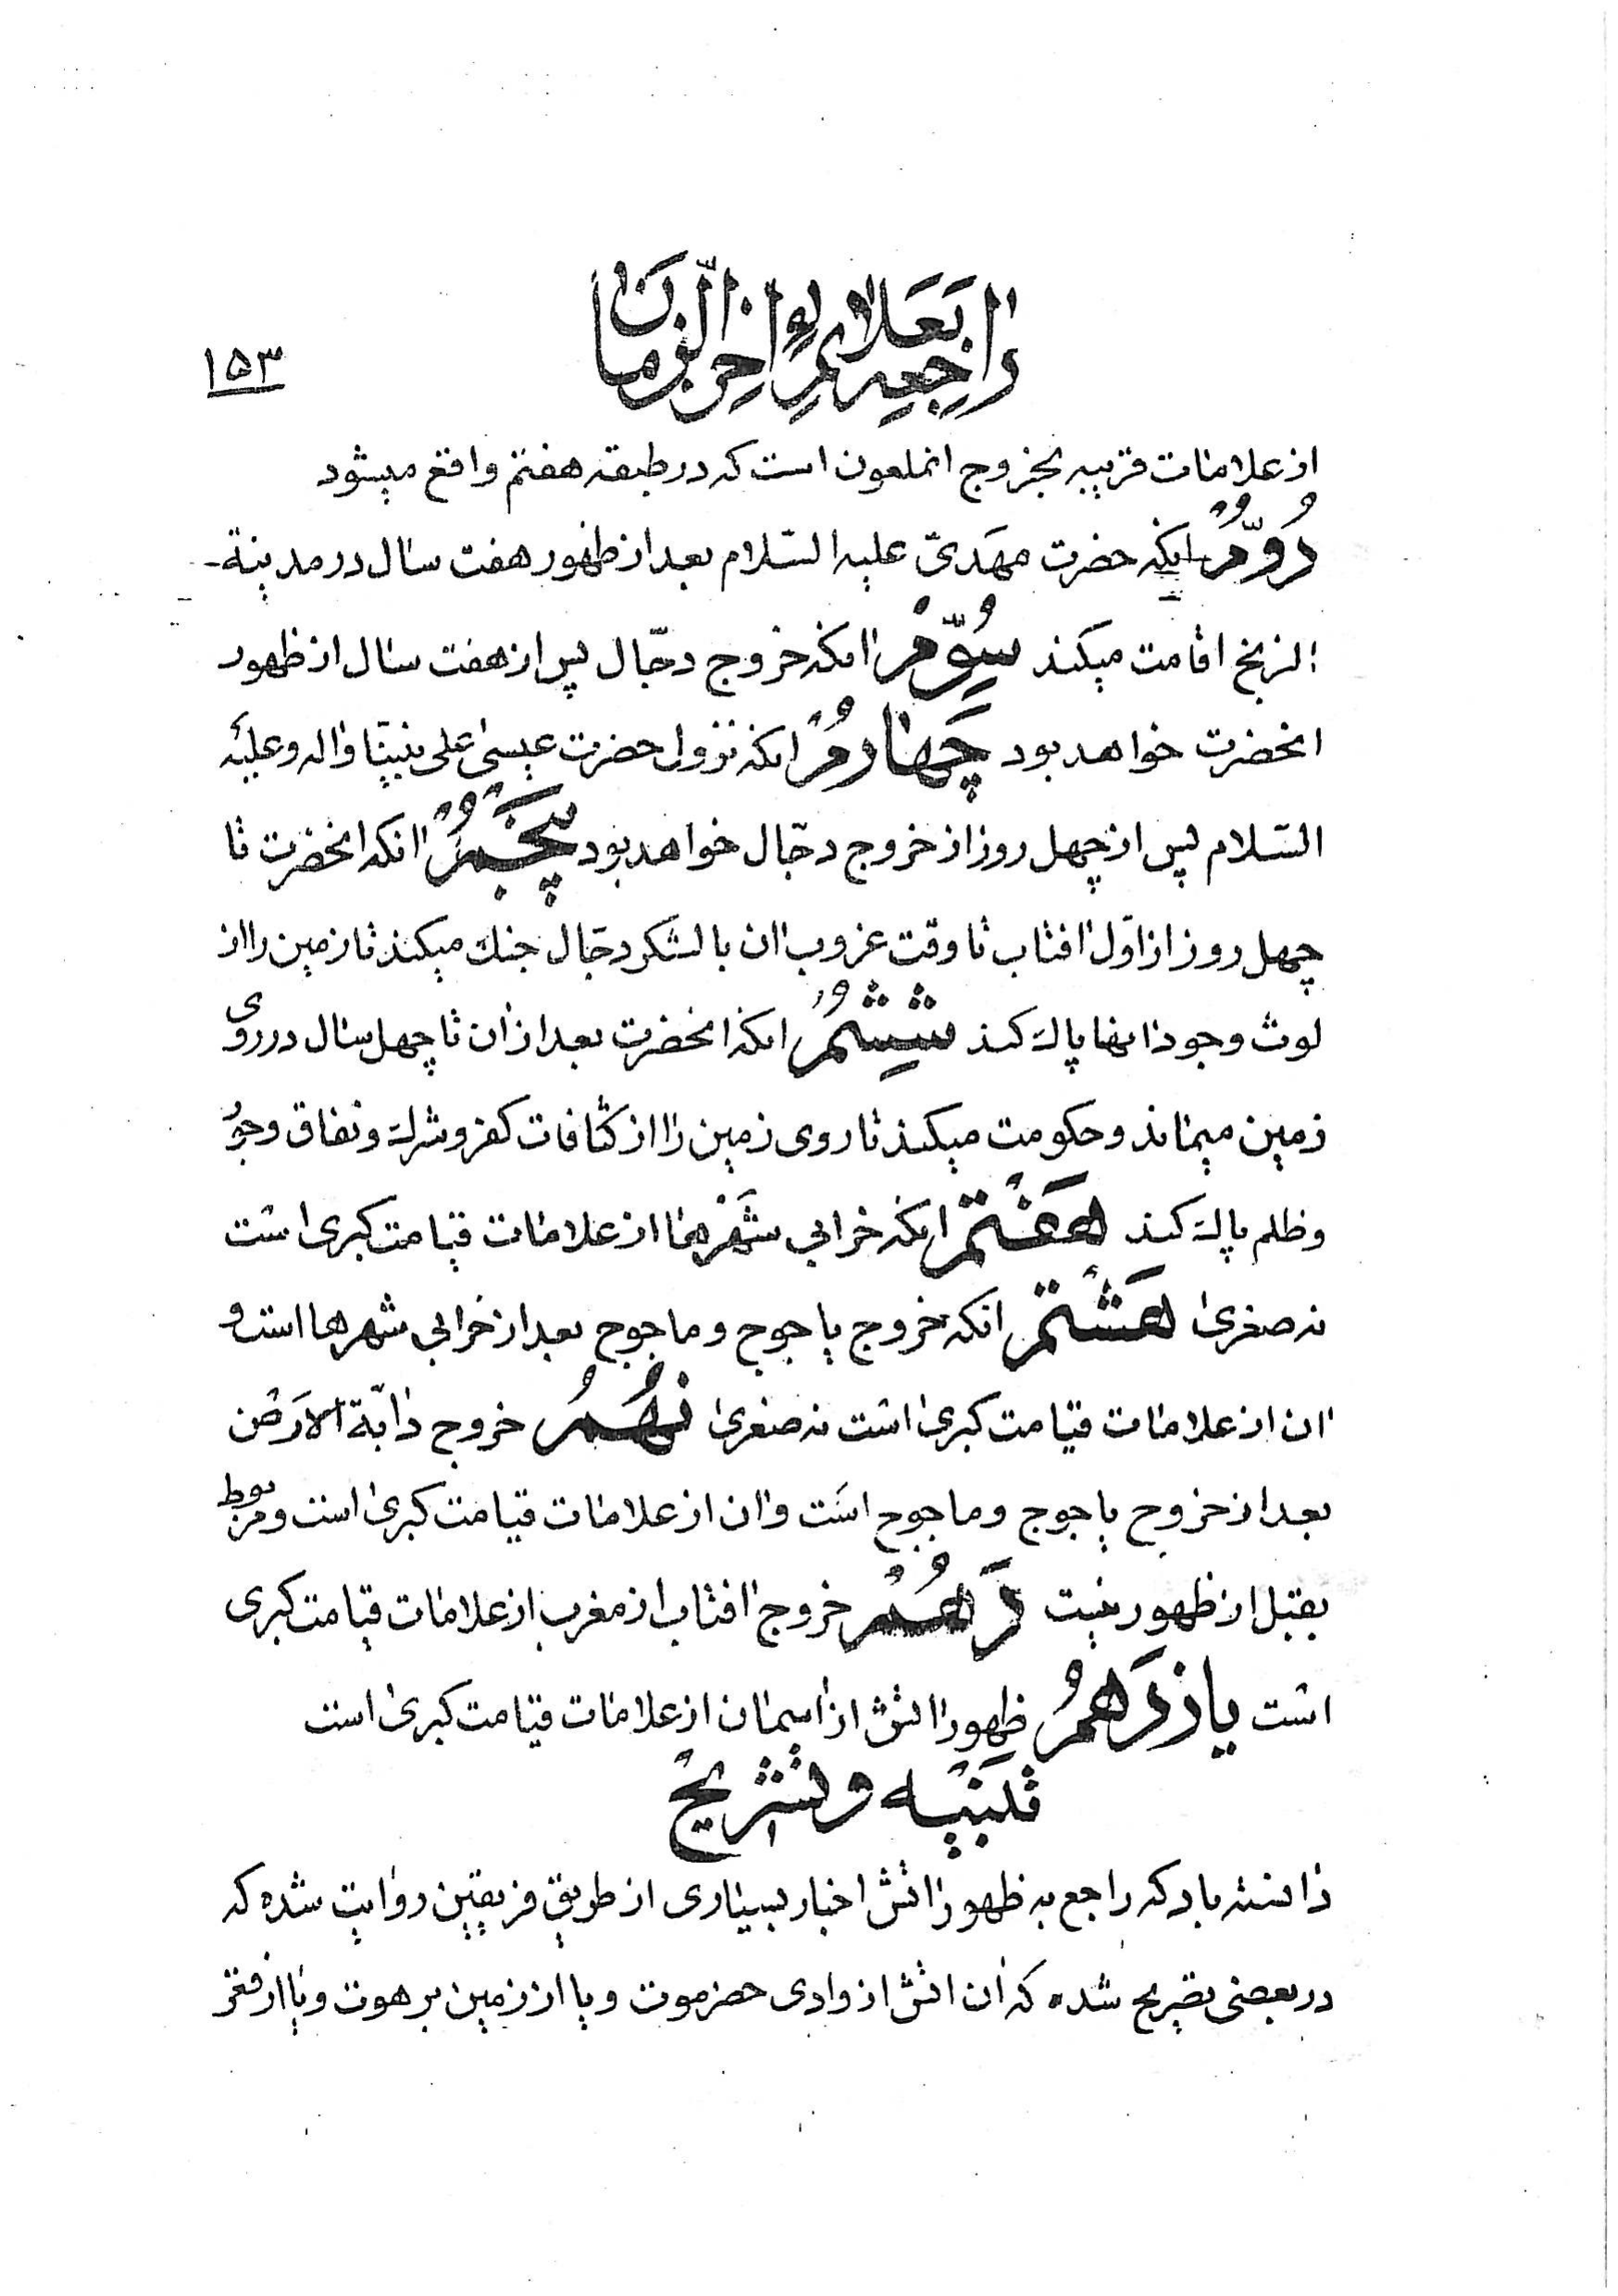 راجعه بعلائم لواخر الزمان
۱۵۳
از علامات قریبه بخروج انملعون است که در طبقه هفتم واقع میشود
دُوّمُ انکه حضرت مهدیّ علیه السّلام بعد از ظهور هفت سال در مدینة
الزیخ اقامت میکند سِوُّم انکه خروج دجّال پس از هفت سال از ظهور
انحضرت خواهد بود چَهارمُ انکه نزول حضرت عیسی علی نبیّنا واله وعلیه
السّلام پس از چهل روز از خروج دجّال خواهد بود پنجمُ انکه انحضرت تا
چهل روز از اوّل افتاب تا وقت غروب ان با لشکر دجّال جنك میکند تا زمین را از
لوث وجود انها پاك کند شِشمُ انکه انحضرت بعد از ان تا چهل سال در روی
زمین میماند و حکومت میکند تا روی زمین را از کثافات کفر و شرك و نفاق و جوُ
و ظلم پاك کند هَفتم انکه خرابی شَهرها از علامات قیامت کبری است
نه صغری هَشتم انکه خروج یاجوج و ماجوج بعد از خرابی شهرها است و
ان از علامات قیامت کبری است نه صغری نهُمُ خروج دابّة الارَض
بعد از خروج یاجوج و ماجوج است و ان از علامات قیامت کبری است و مربوط
بقبل از ظهور نیست دَهُم خروج افتاب از مغرب از علامات قیامت کبری
است یازدَهمُ ظهور اتش از اسمان از علامات قیامت کبری است
تَنبیه و تشریحُ
دانسته باد که راجع به ظهور اتش اخبار بسیاری از طریق فریقین روایت شده که
در بعضی تصریح شده که ان اتش از وادی حضرموت و یا از زمین برهوت و یا از قعر